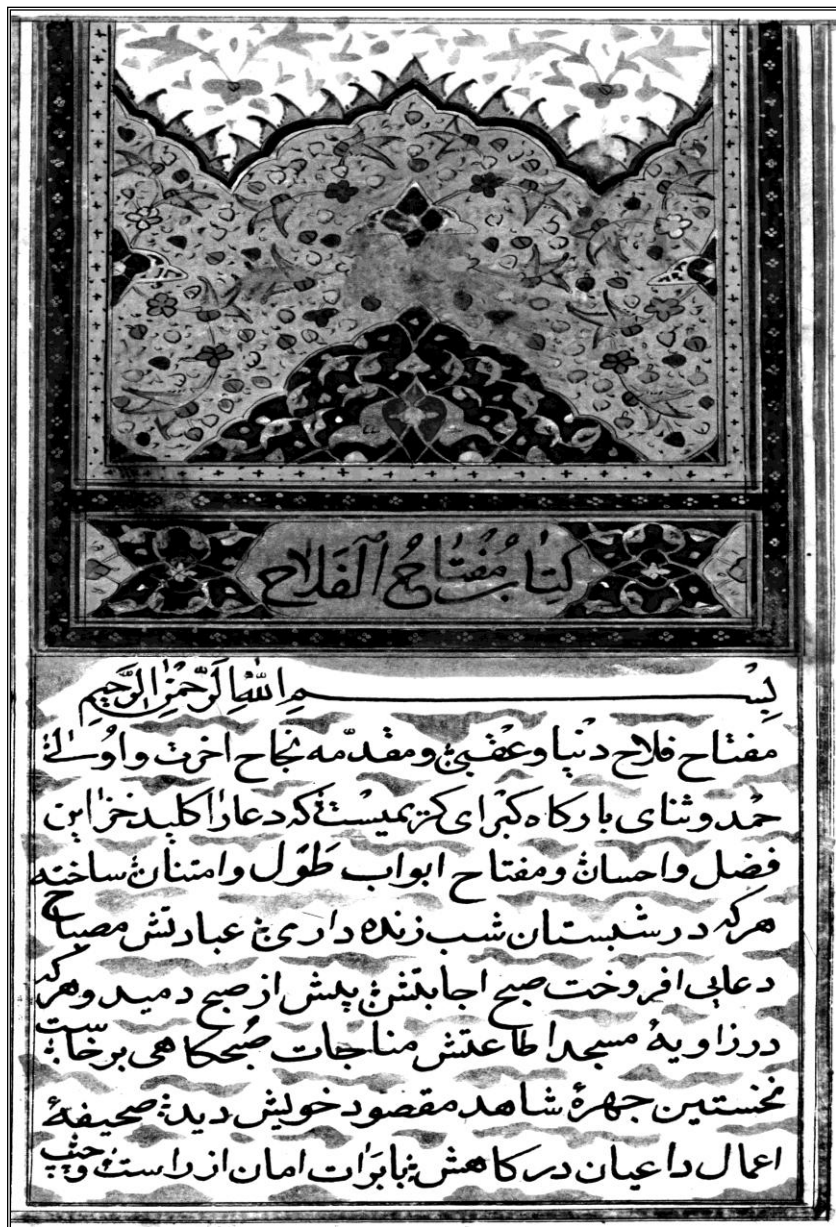 کتاب مفتاح الفلاح
بسم الله الرحمن الرحیم
مفتاح فلاح دنیا و عقبی و مقدّمه نجاح اخرت و اولی
حمد و ثنای بارکاه کبرای کریمیست که دعا را کلید خزاین
فضل و احسان و مفتاح ابواب طَوْل و امتنان ساخته
هرکه در شبستان شب زنده داری عبادتش مصباح
دعایی افروخت صبح اجابتش پیش از صبح دمید و هرکه
در زاویهٔ مسجد اطاعتش مناجات صُبحکاهی برخاست
نخستین جهرهٔ شاهد مقصود خویش دید صحیفهٔ
اعمال داعیان درکاهش با بَرَات امان از راست و چپ